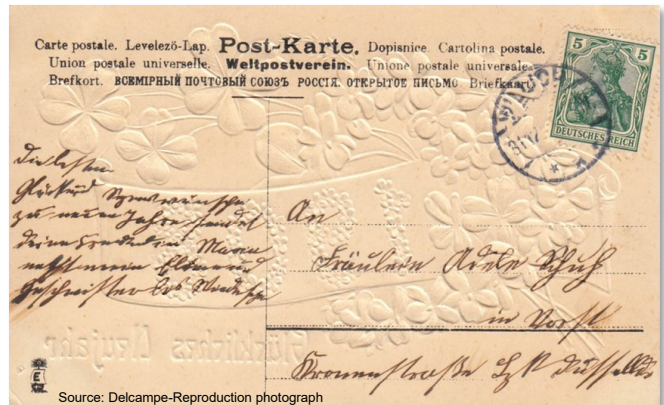 Carte postale. Levelező-Lap. Post-Karte. Dopisnice. Cartolina postale.
Union postale universelle. Weltpostverein. Unione postale universale.
Brefkort. ВСЕМІРНЫЙ ПОЧТОВЫЙ СОЮЗЪ РОССІЯ. ОТКРЫТОЕ ПИСЬМО. Briefkaart.
5 5
DEUTSCHES REICH
31 12
Die besten
Glück und Segenswünsche
zu neuen Jahre sendet
deine Freundin Maria
nebst meine Eltern und
Geschwister
An
Fräulein Adele Schuh
in Vorst
Kronenstraße Düsseldorf
Glückliches Neujahr
E
Source: Delcampe-Reproduction photograph